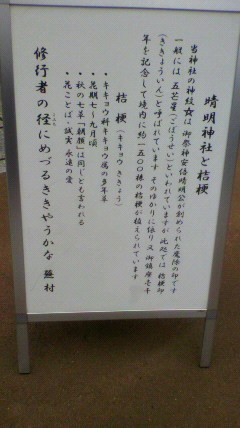 晴明神社と桔梗
当神社の神紋☆は 御祭神安倍晴明公が創められた魔除の印です
一般には 五芒星(ごぼうせい)といわれていますが 此処では 桔梗印
(ききょういん)と呼ばれています そのゆかりに依り 又 御鎮座壱千
年を記念して境内に約一五〇〇株の桔梗が植えられています
桔梗(キキョウ ききょう)
・キキョウ科キキョウ属の多年草
・花期 七～九月頃
・秋の七草「朝顔」は同じとも言われる
・花ことば・誠実 永遠の愛
修行者の径にめづるききやうかな 蕪村